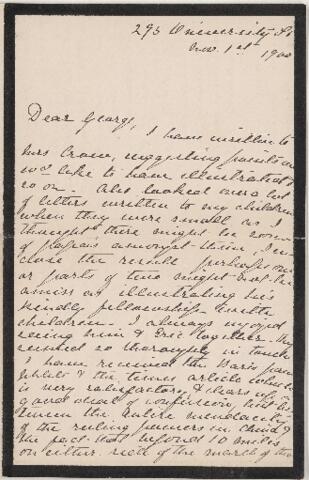 293 University St
Nov. 1st 1900
Dear George,
I have written to
Mrs Crow, suggesting points on
wd like to have illustrated &
so on. Also looked over a lot
of letters written to my children
when they were small as I
thought there might be some
of amongst them. I en-
close the result perhaps one
or parts of two might not be
amiss as illustrating his
kindly fellowship with
children. I always enjoyed
seeing him & Eric together. They
seemed so thoroughly in touch
I have received the
& the Times article which
is very satisfactory, & clears up a
good deal of confusion,
the entire mendacity
of the ruling powers in China &
the fact that beyond 10 miles
on either side of the march of the